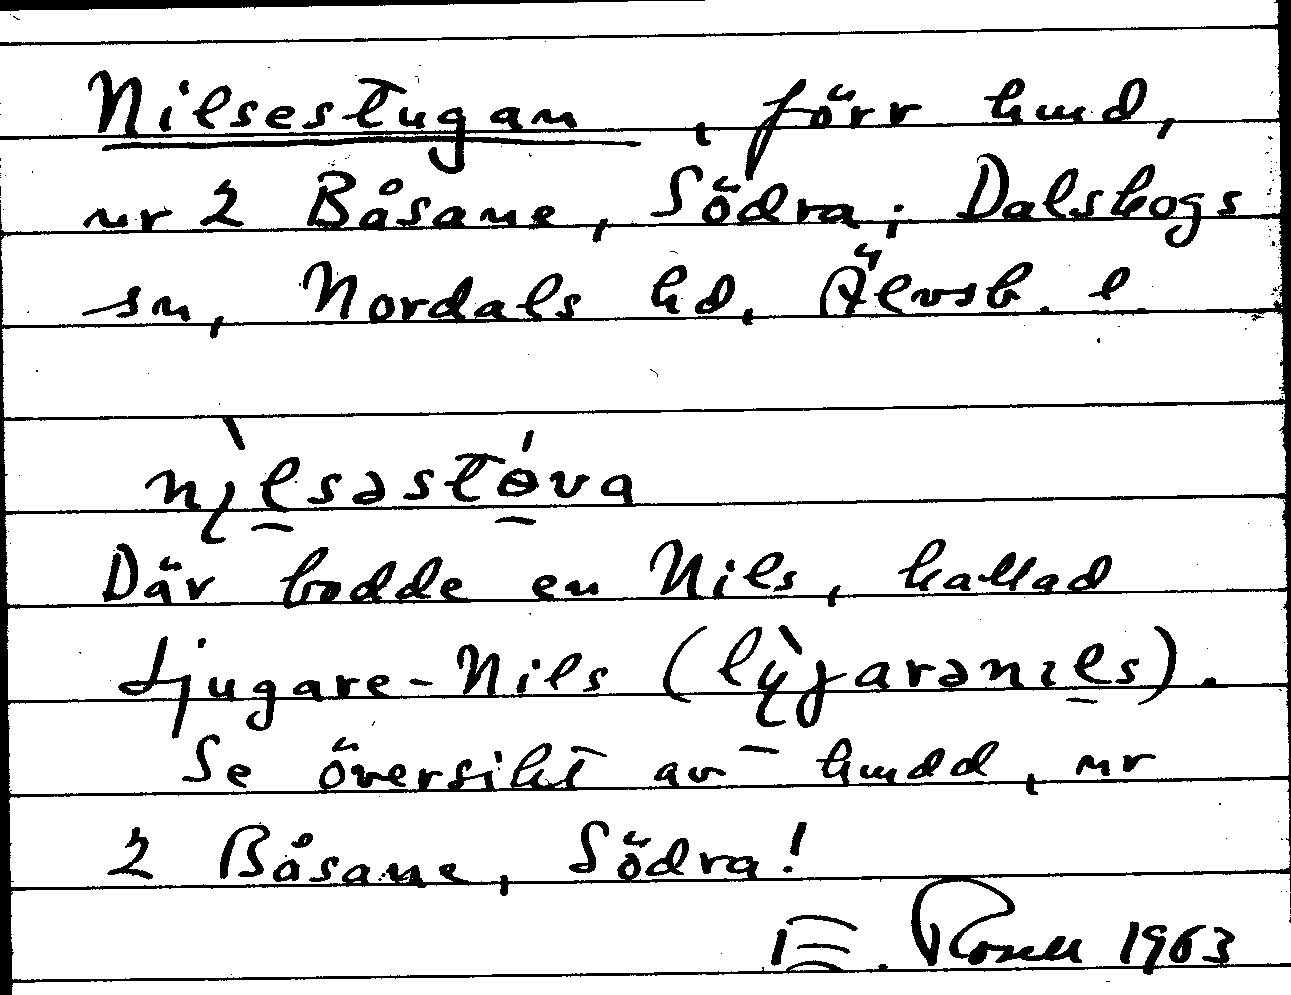 Nilsestugan, förr hmd,
nr 2 Båsane, Södra; Dalskogs
sn, Nordals hd, Älvsb. l
nìlsəstɵ́va
Där bodde en Nils, kallad
Ljugare-Nils (lỳgarənıls).
Se översikt av hmdd, nr
2 Båsane, Södra!
E. Rosell 1963